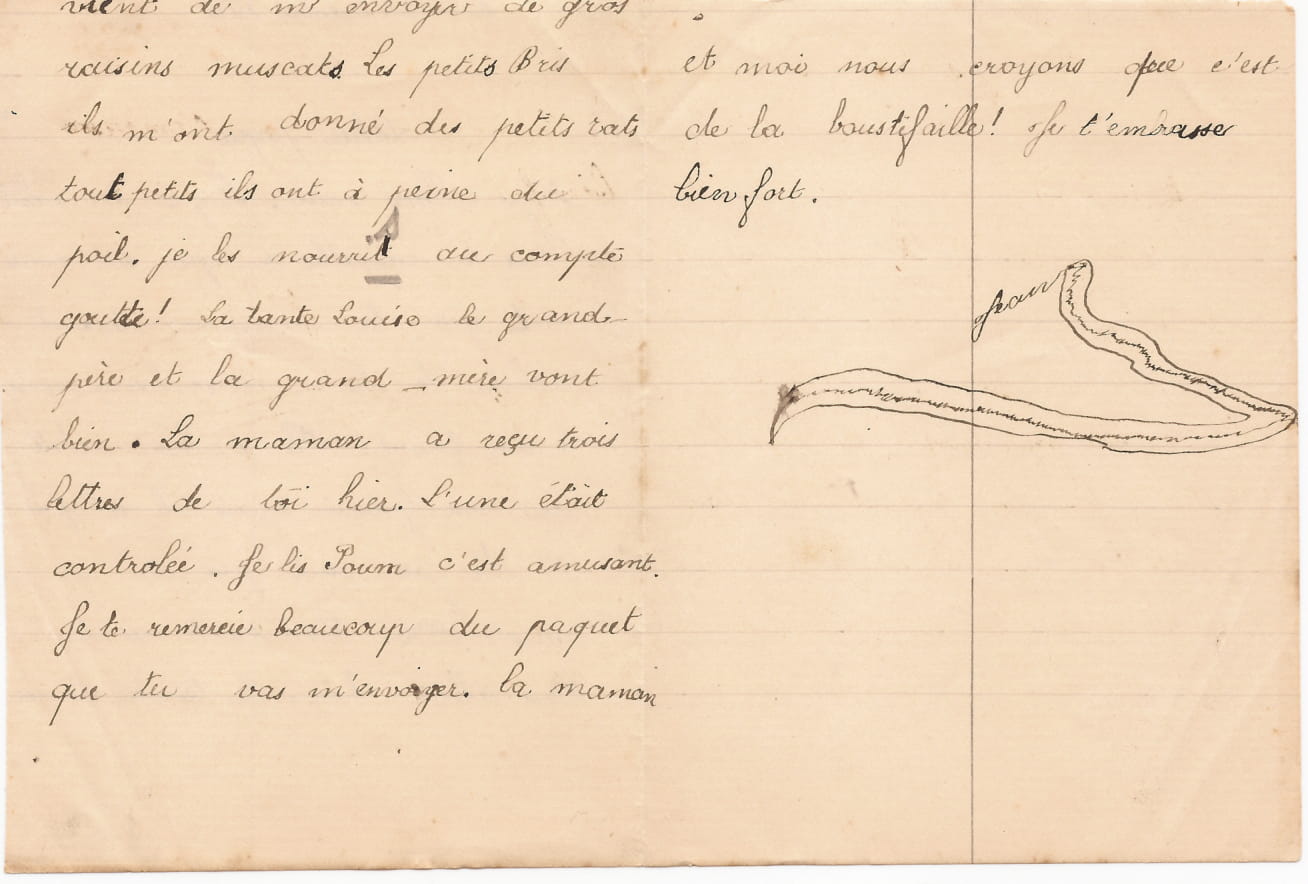 vient de m'envoyer de gros
raisins muscats. Les petits Bris
ils m'ont donné des petits rats
tout petits ils ont à peine du
poil. je les nourrit au compte
goutte! La tante Louise le grand-
père et la grand-mère vont
bien. La maman a reçu trois
lettres de toi hier. L'une était
controlée. Je lis Poum c'est amusant.
Je te remercie beaucoup du paquet
que tu vas m'envoyer. la maman
et moi nous croyons que c'est
de la boustifaille! Je t'embrasse
bien fort.
Jean